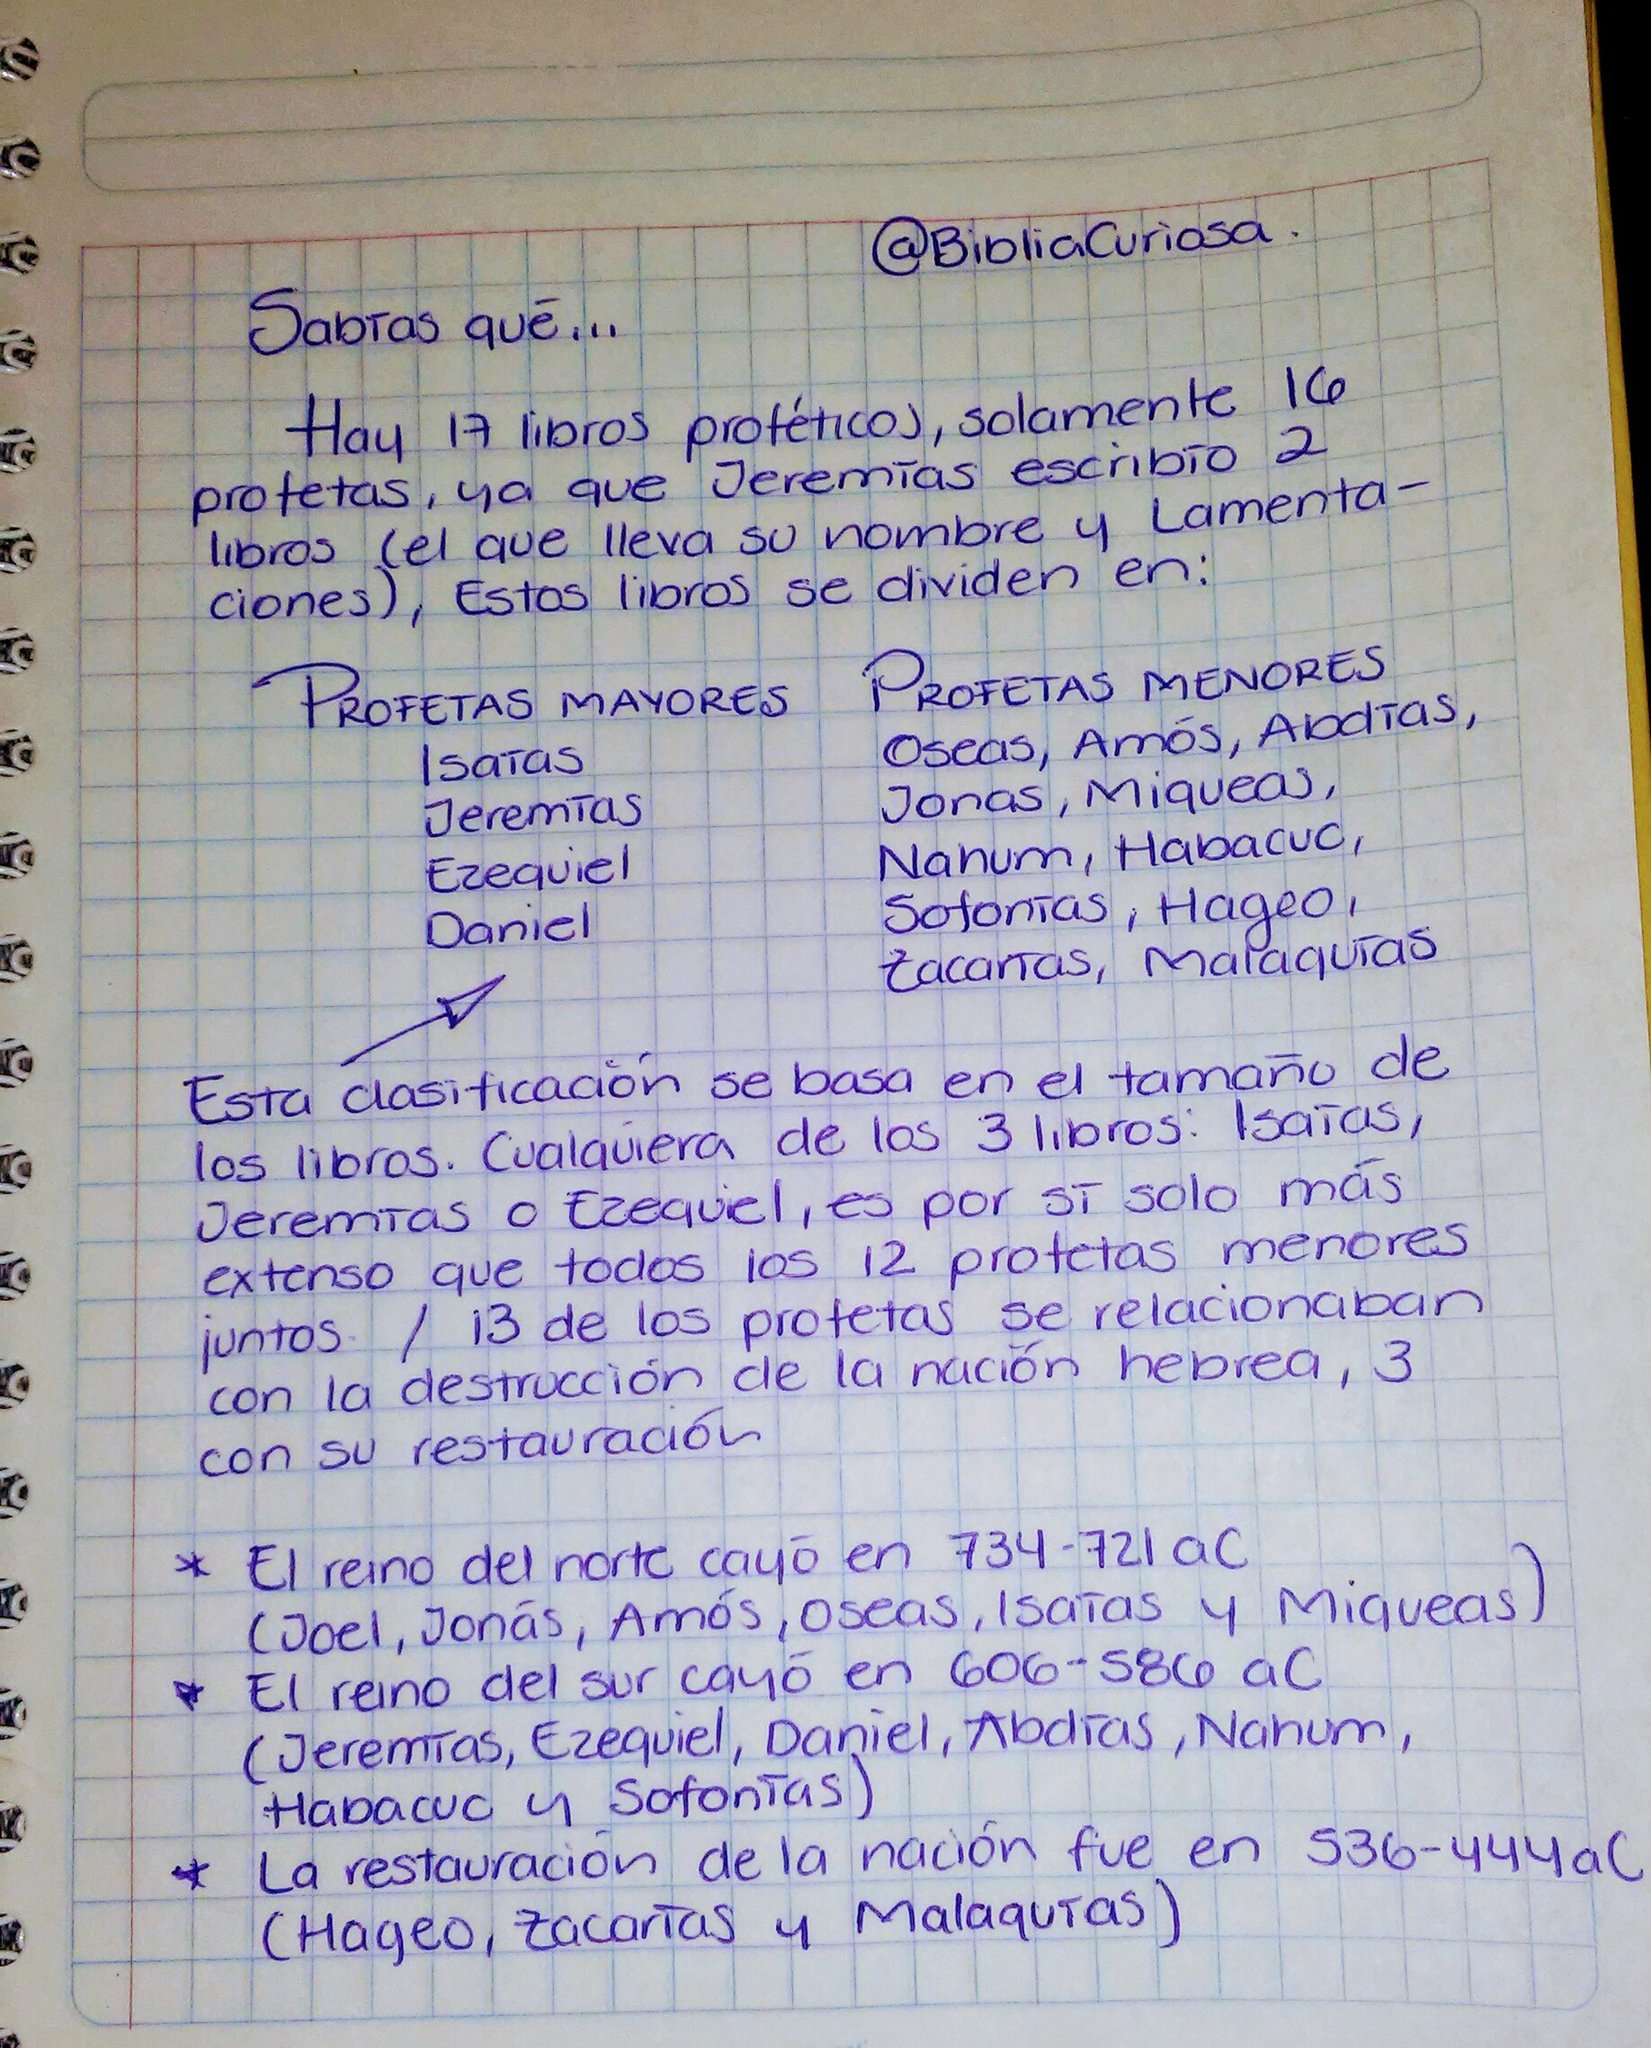 @BibliaCuriosa.
Sabías qué...
Hay 17 libros proféticos, solamente 16
profetas, ya que Jeremías escribío 2
libros (el que lleva su nombre y Lamenta-
ciones), Estos libros se dividen en:
PROFETAS MAYORES
Isaías
Jeremías
Ezequiel
Daniel
PROFETAS MENORES
Oseas, Amós, Abdías,
Jonas, Miqueas,
Nahum, Habacuc,
Sofonías, Hageo,
Zacarías, Malaquías
Esta clasificación se basa en el tamaño de
los libros. Cualquiera de los 3 libros: Isaías,
Jeremías o Ezequiel, es por sí solo más
extenso que todos los 12 profetas menores
juntos. / 13 de los profetas se relacionaban
con la destrucción de la nación hebrea, 3
con su restauración
* El reino del norte cayó en 734-721 aC
(Joel, Jonás, Amós, Oseas, Isaías y Miqueas)
* El reino del sur cayó en 606-586 aC
(Jeremías, Ezequiel, Daniel, Abdías, Nahum,
Habacuc y Sofonías)
* La restauración de la nación fue en 536-444aC
(Hageo, Zacarías y Malaquías)